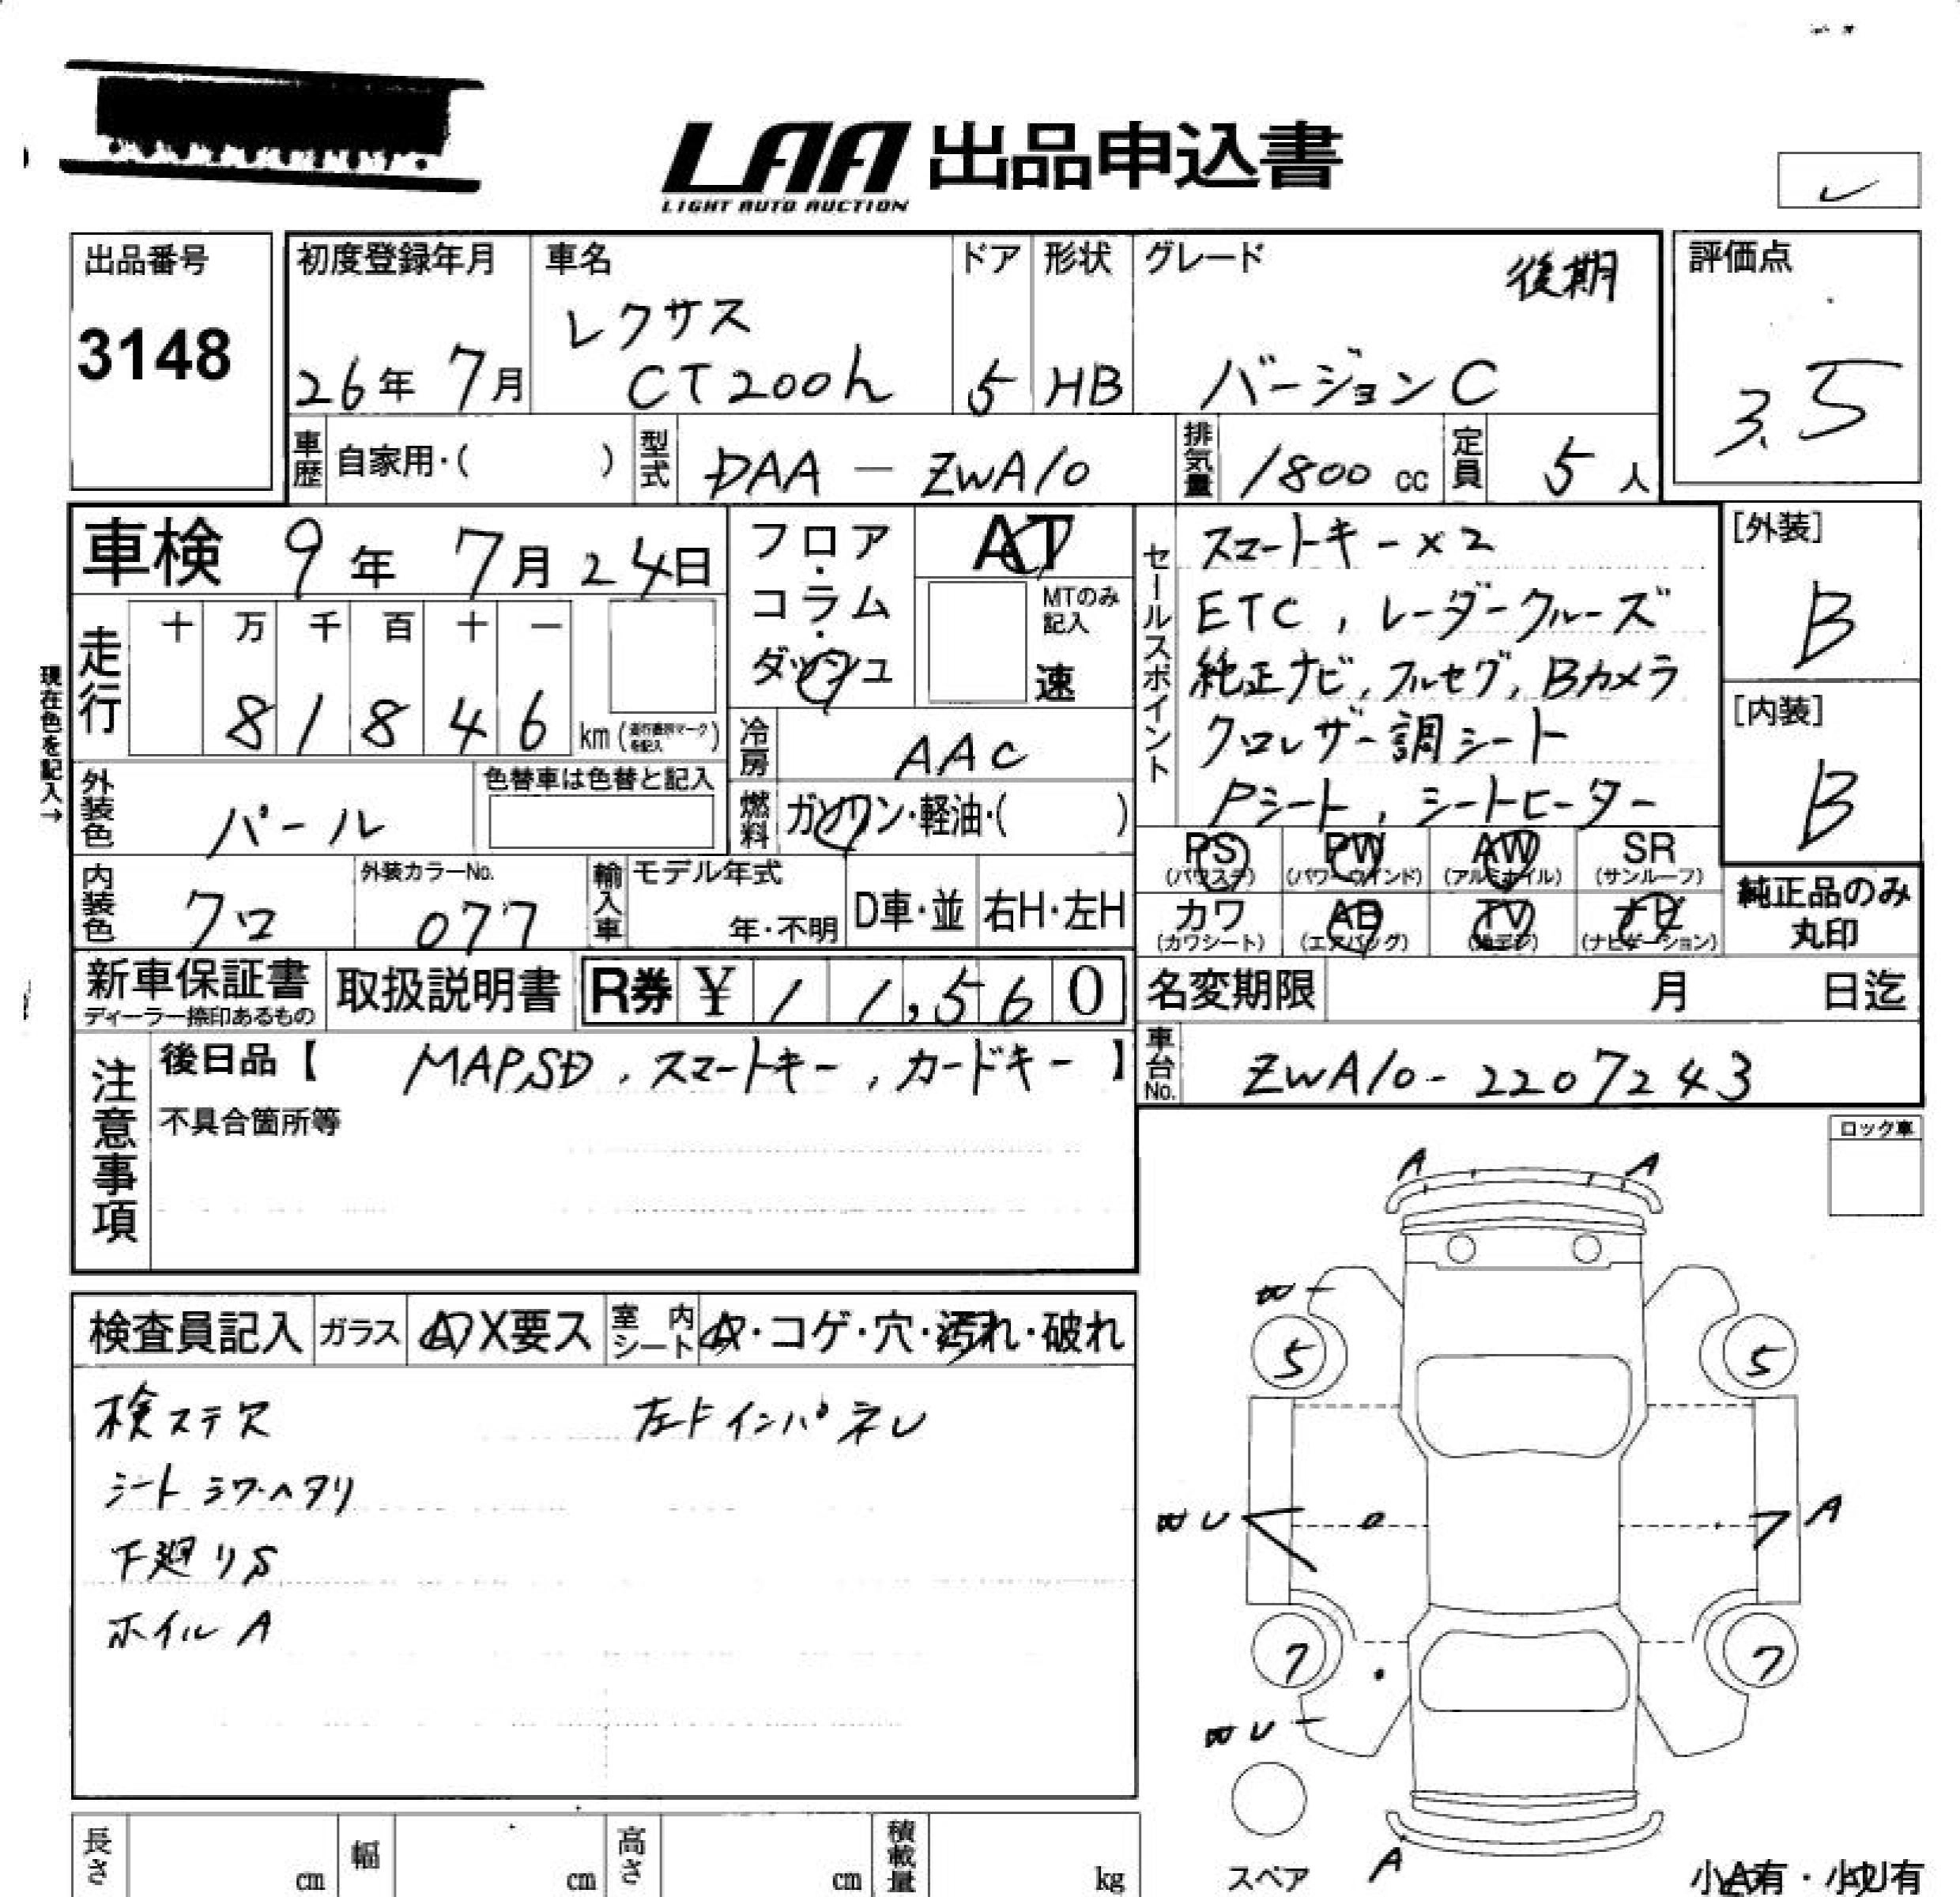 LAA 出品申込書
LIGHT AUTO AUCTION
レ
出品番号
3148
初度登録年月
26年 7月
車名
レクサス
CT200h
ドア
5
形状
HB
グレード
後期
バージョンC
評価点
3.5
車歴 自家用・( )
型式 DAA - ZWA10
排気量 1800 cc
定員 5 人
車検 9年 7月 24日
フロア・コラム・ダッシュ
AT
MTのみ記入
速
現在色を記入→
走行
十 万 千 百 十 一
8 1 8 4 6 km (走行直読マークを記入)
冷房 AAC
外装色 パール
色替車は色替と記入
燃料 ガソリン・軽油・( )
セールスポイント
スマートキー×2
ETC, レーダークルーズ
純正ナビ, フルセグ, Bカメラ
クロレザー調シート
Pシート, シートヒーター
[外装]
B
[内装]
B
内装色 クロ
外装カラーNo.
077
輸入車 モデル年式
年・不明
D車・並 右H・左H
PS (パワステ)
PW (パワーウインド)
AW (アルミホイル)
SR (サンルーフ)
カワ (カワシート)
AB (エアバッグ)
TV (地デジ)
ナビ (ナビゲーション)
純正品のみ
丸印
新車保証書
ディーラー捺印あるもの
取扱説明書
R券 ¥ 1 1,5 6 0
名変期限 月 日迄
注意事項
後日品【 MAPSD, スマートキー, カードキー 】
不具合箇所等
車台No. ZWA10-2207243
ロック車
検査員記入 ガラス A・X要ス 室内シート A・コゲ・穴・汚れ・破れ
検ステ欠
左Fインパネレ
シートシワ・ヘタリ
下廻りS
ホイルA
A A
5 5
U A
7 7
U
A
スペア
小A有・小U有
長さ cm
幅 cm
高さ cm
積載量 kg